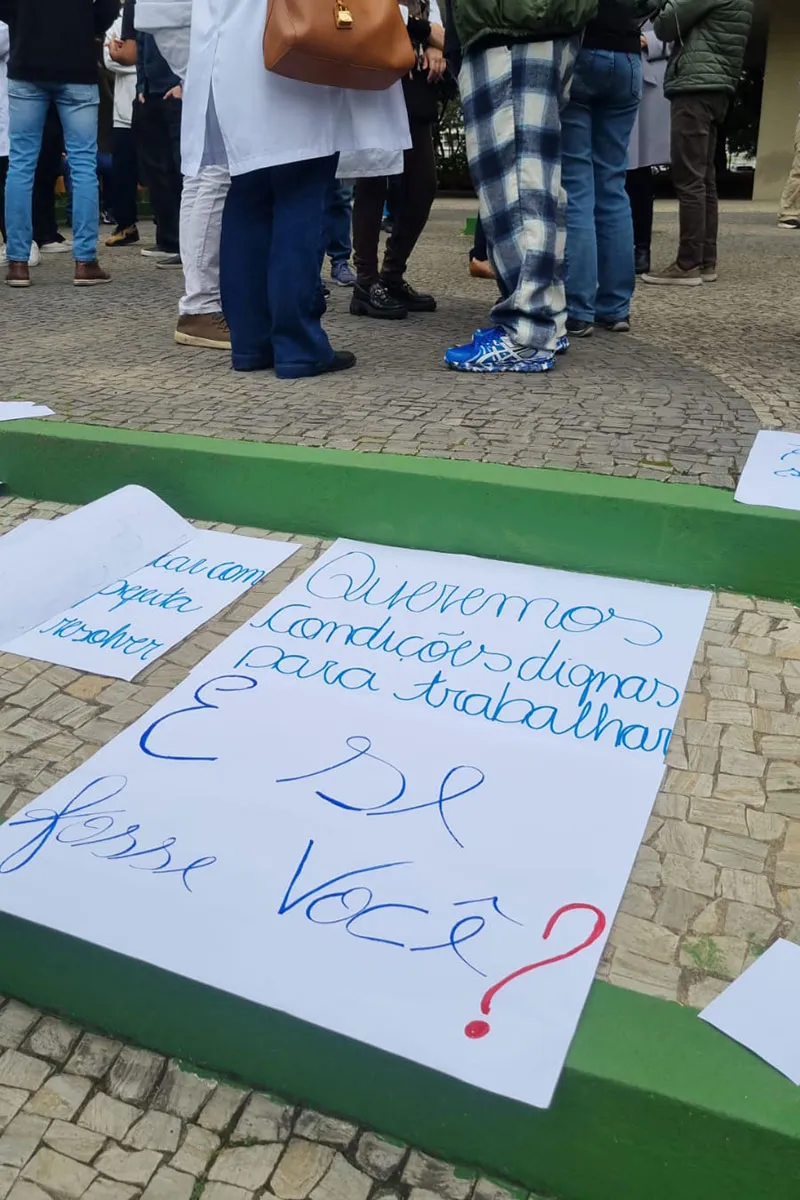 tar com
prefeita
resolver
Queremos
Condições dignas
para trabalhar
E se
fosse Você?